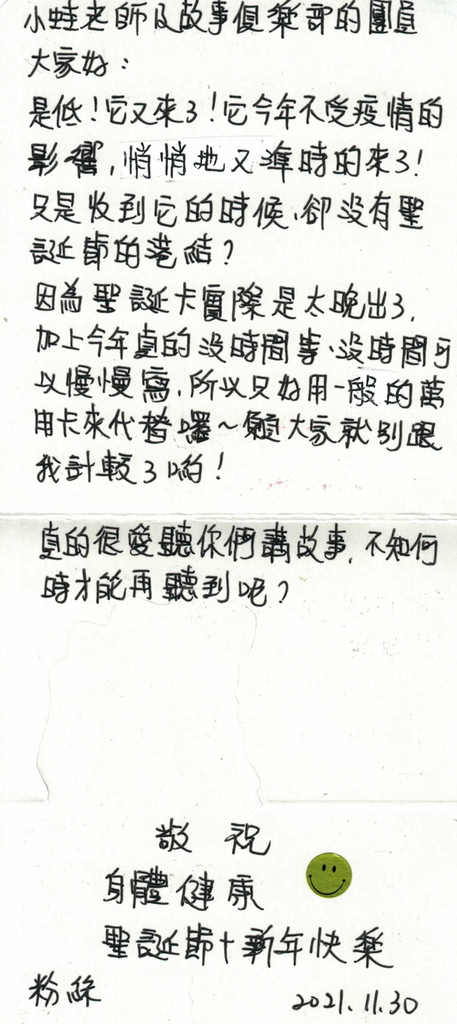 小蛙老師及故事俱樂部的團員
大家好：
是低！它又來了！它今年不受疫情的
影響，悄悄地又準時的來了！
只是收到它的時候、卻沒有聖
誕節的連結？
因為聖誕卡實際是太晚出了，
加上今年真的沒時間等、沒時間可
以慢慢寫，所以只好用一般的萬
用卡來代替囉～願大家就別跟
我計較了喲！
真的很愛聽你們講故事，不知何
時才能再聽到呢？
敬祝
身體健康
聖誕節＋新年快樂
粉絲
2021.11.30